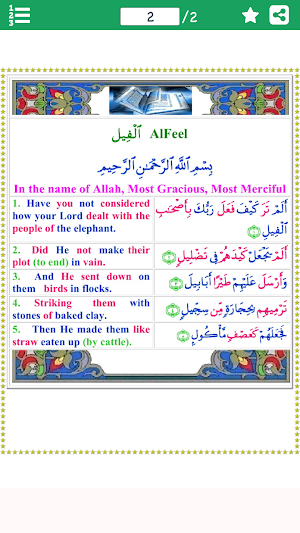 2 /2
اَلْفِيل AlFeel
بِسْمِ اللَّهِ الرَّحْمَٰنِ الرَّحِيمِ
In the name of Allah, Most Gracious, Most Merciful
1. Have you not considered
how your Lord dealt with the
people of the elephant.
أَلَمْ تَرَ كَيْفَ فَعَلَ رَبُّكَ بِأَصْحَٰبِ
الْفِيلِ ١
2. Did He not make their
plot (to end) in vain.
أَلَمْ يَجْعَلْ كَيْدَهُمْ فِى تَضْلِيلٍ ٢
3. And He sent down on
them birds in flocks.
وَأَرْسَلَ عَلَيْهِمْ طَيْرًا أَبَابِيلَ ٣
4. Striking them with
stones of baked clay.
تَرْمِيهِم بِحِجَارَةٍ مِّن سِجِّيلٍ ٤
5. Then He made them like
straw eaten up (by cattle).
فَجَعَلَهُمْ كَعَصْفٍ مَّأْكُولٍ ٥